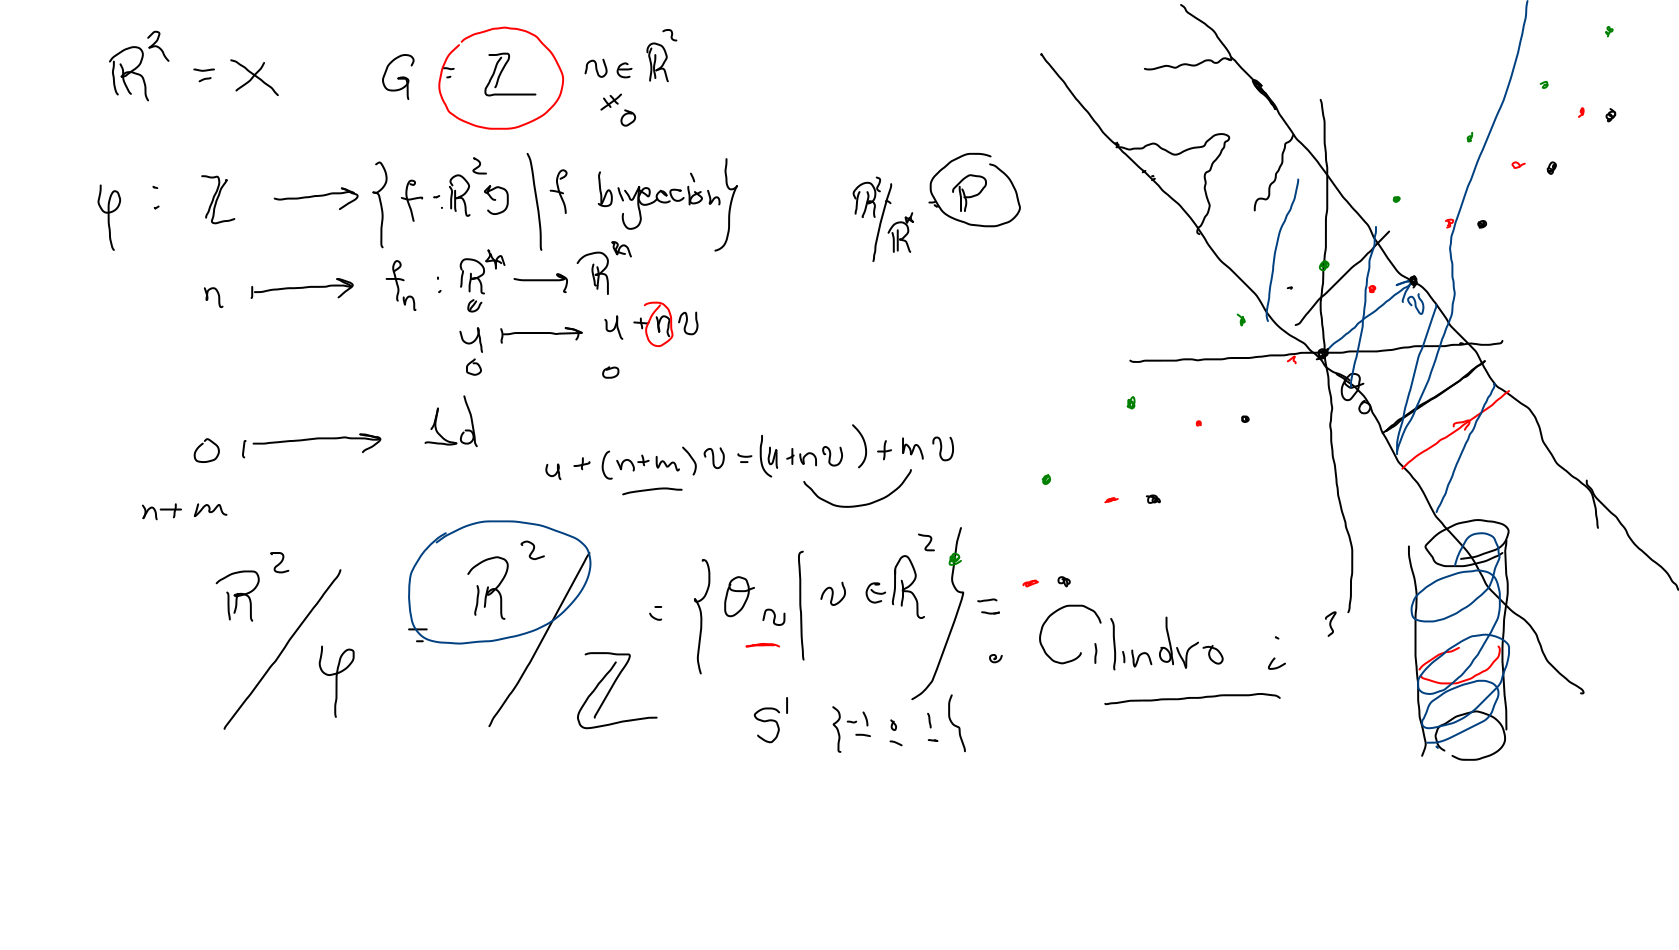 ℝ² = X G = ℤ v ∈ ℝ²
≠ 0
φ : ℤ ⟶ { f : ℝ² ↺ | f biyección }
ℝ²/ℝ* = ℙ
n ⟼ fₙ : ℝ ⟶ ℝ
u ⟼ u + nv
0 0
0 ⟼ 1d
u + (n+m) v = (u + nv) + mv
n + m
ℝ²/φ = ℝ²/ℤ = { θᵥ | v ∈ ℝ² } = Cilindro
S¹ {-1 0 1}
v